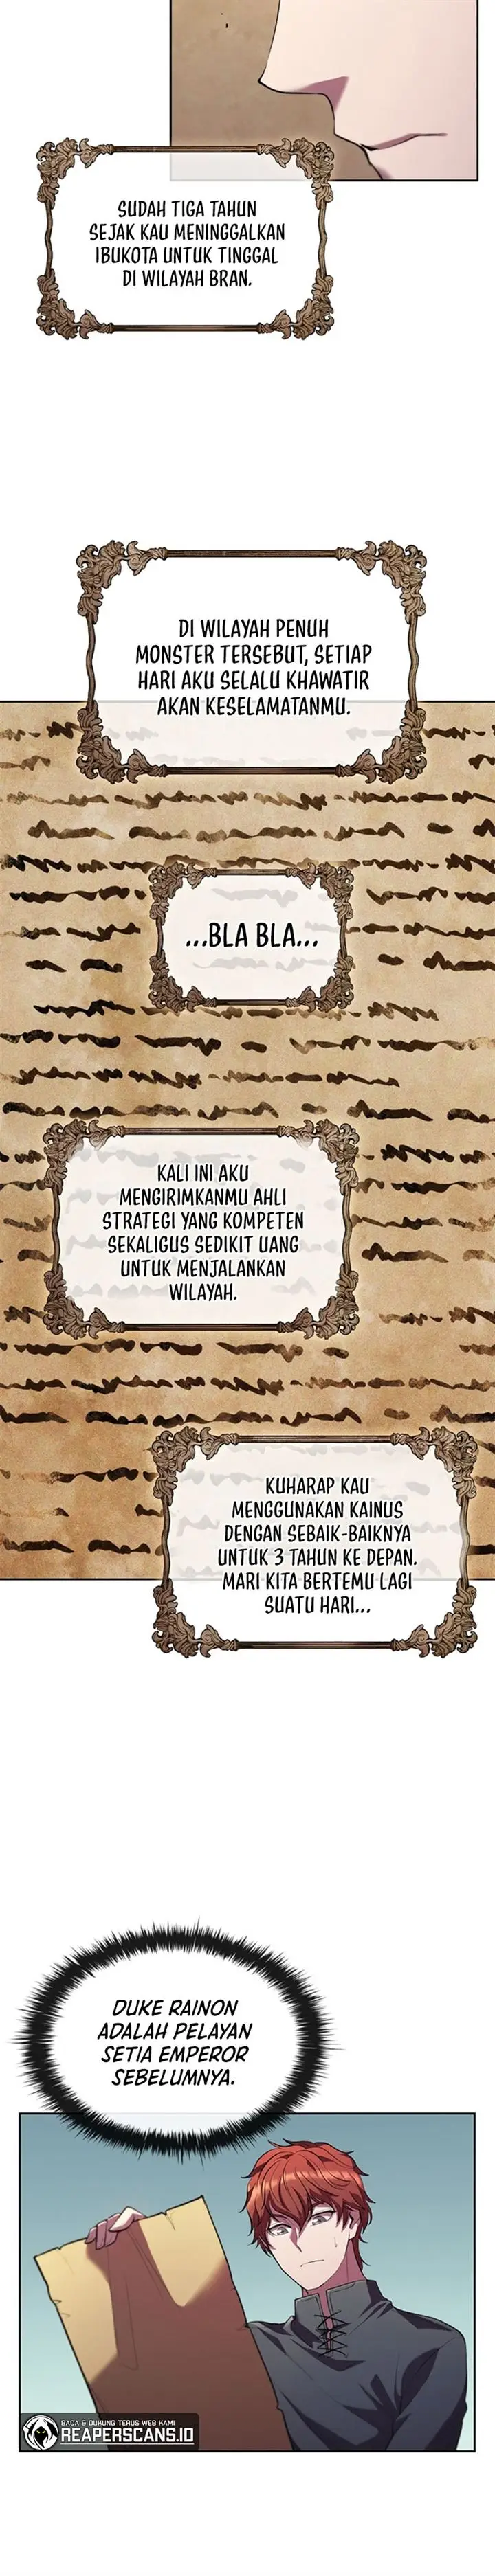 SUDAH TIGA TAHUN
SEJAK KAU MENINGGALKAN
IBUKOTA UNTUK TINGGAL
DI WILAYAH BRAN.
DI WILAYAH PENUH
MONSTER TERSEBUT, SETIAP
HARI AKU SELALU KHAWATIR
AKAN KESELAMATANMU.
...BLA BLA...
KALI INI AKU
MENGIRIMKANMU AHLI
STRATEGI YANG KOMPETEN
SEKALIGUS SEDIKIT UANG
UNTUK MENJALANKAN
WILAYAH.
KUHARAP KAU
MENGGUNAKAN KAINUS
DENGAN SEBAIK-BAIKNYA
UNTUK 3 TAHUN KE DEPAN.
MARI KITA BERTEMU LAGI
SUATU HARI...
DUKE RAINON
ADALAH PELAYAN
SETIA EMPEROR
SEBELUMNYA.
BACA & DUKUNG TERUS WEB KAMI
REAPERSCANS.ID